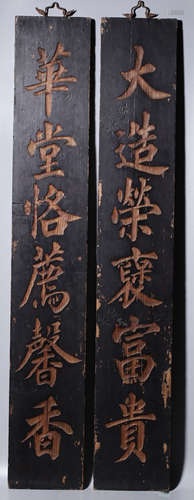 大造榮襄富貴
華堂恪薦馨香